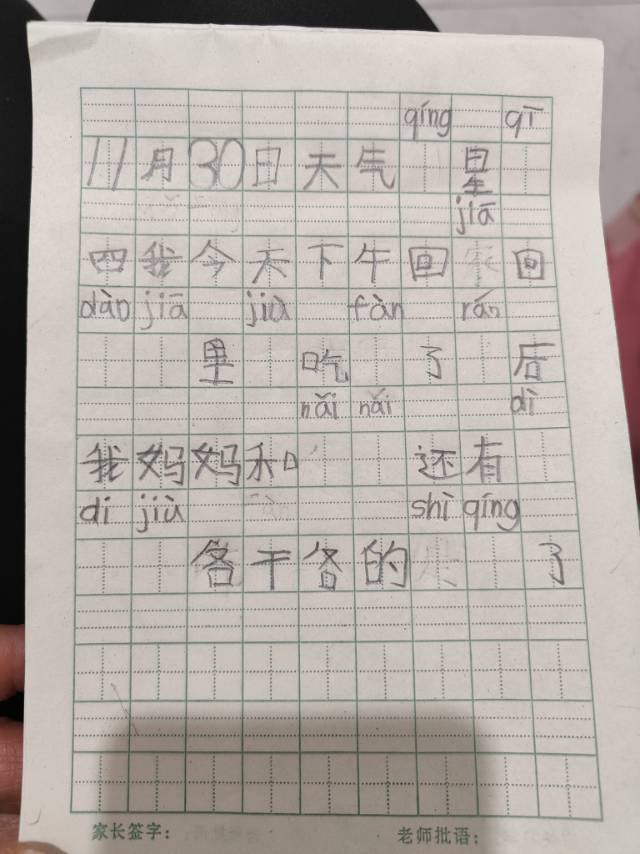 qíng qī
11月30日天气 星
jiā
四我今天下午回家回
dào jiā jiù fàn rán
里 吃 了 后
nǎi nǎi dì
我妈妈和 还有
di jiù shì qíng
各干各的 了
家长签字： 老师批语：